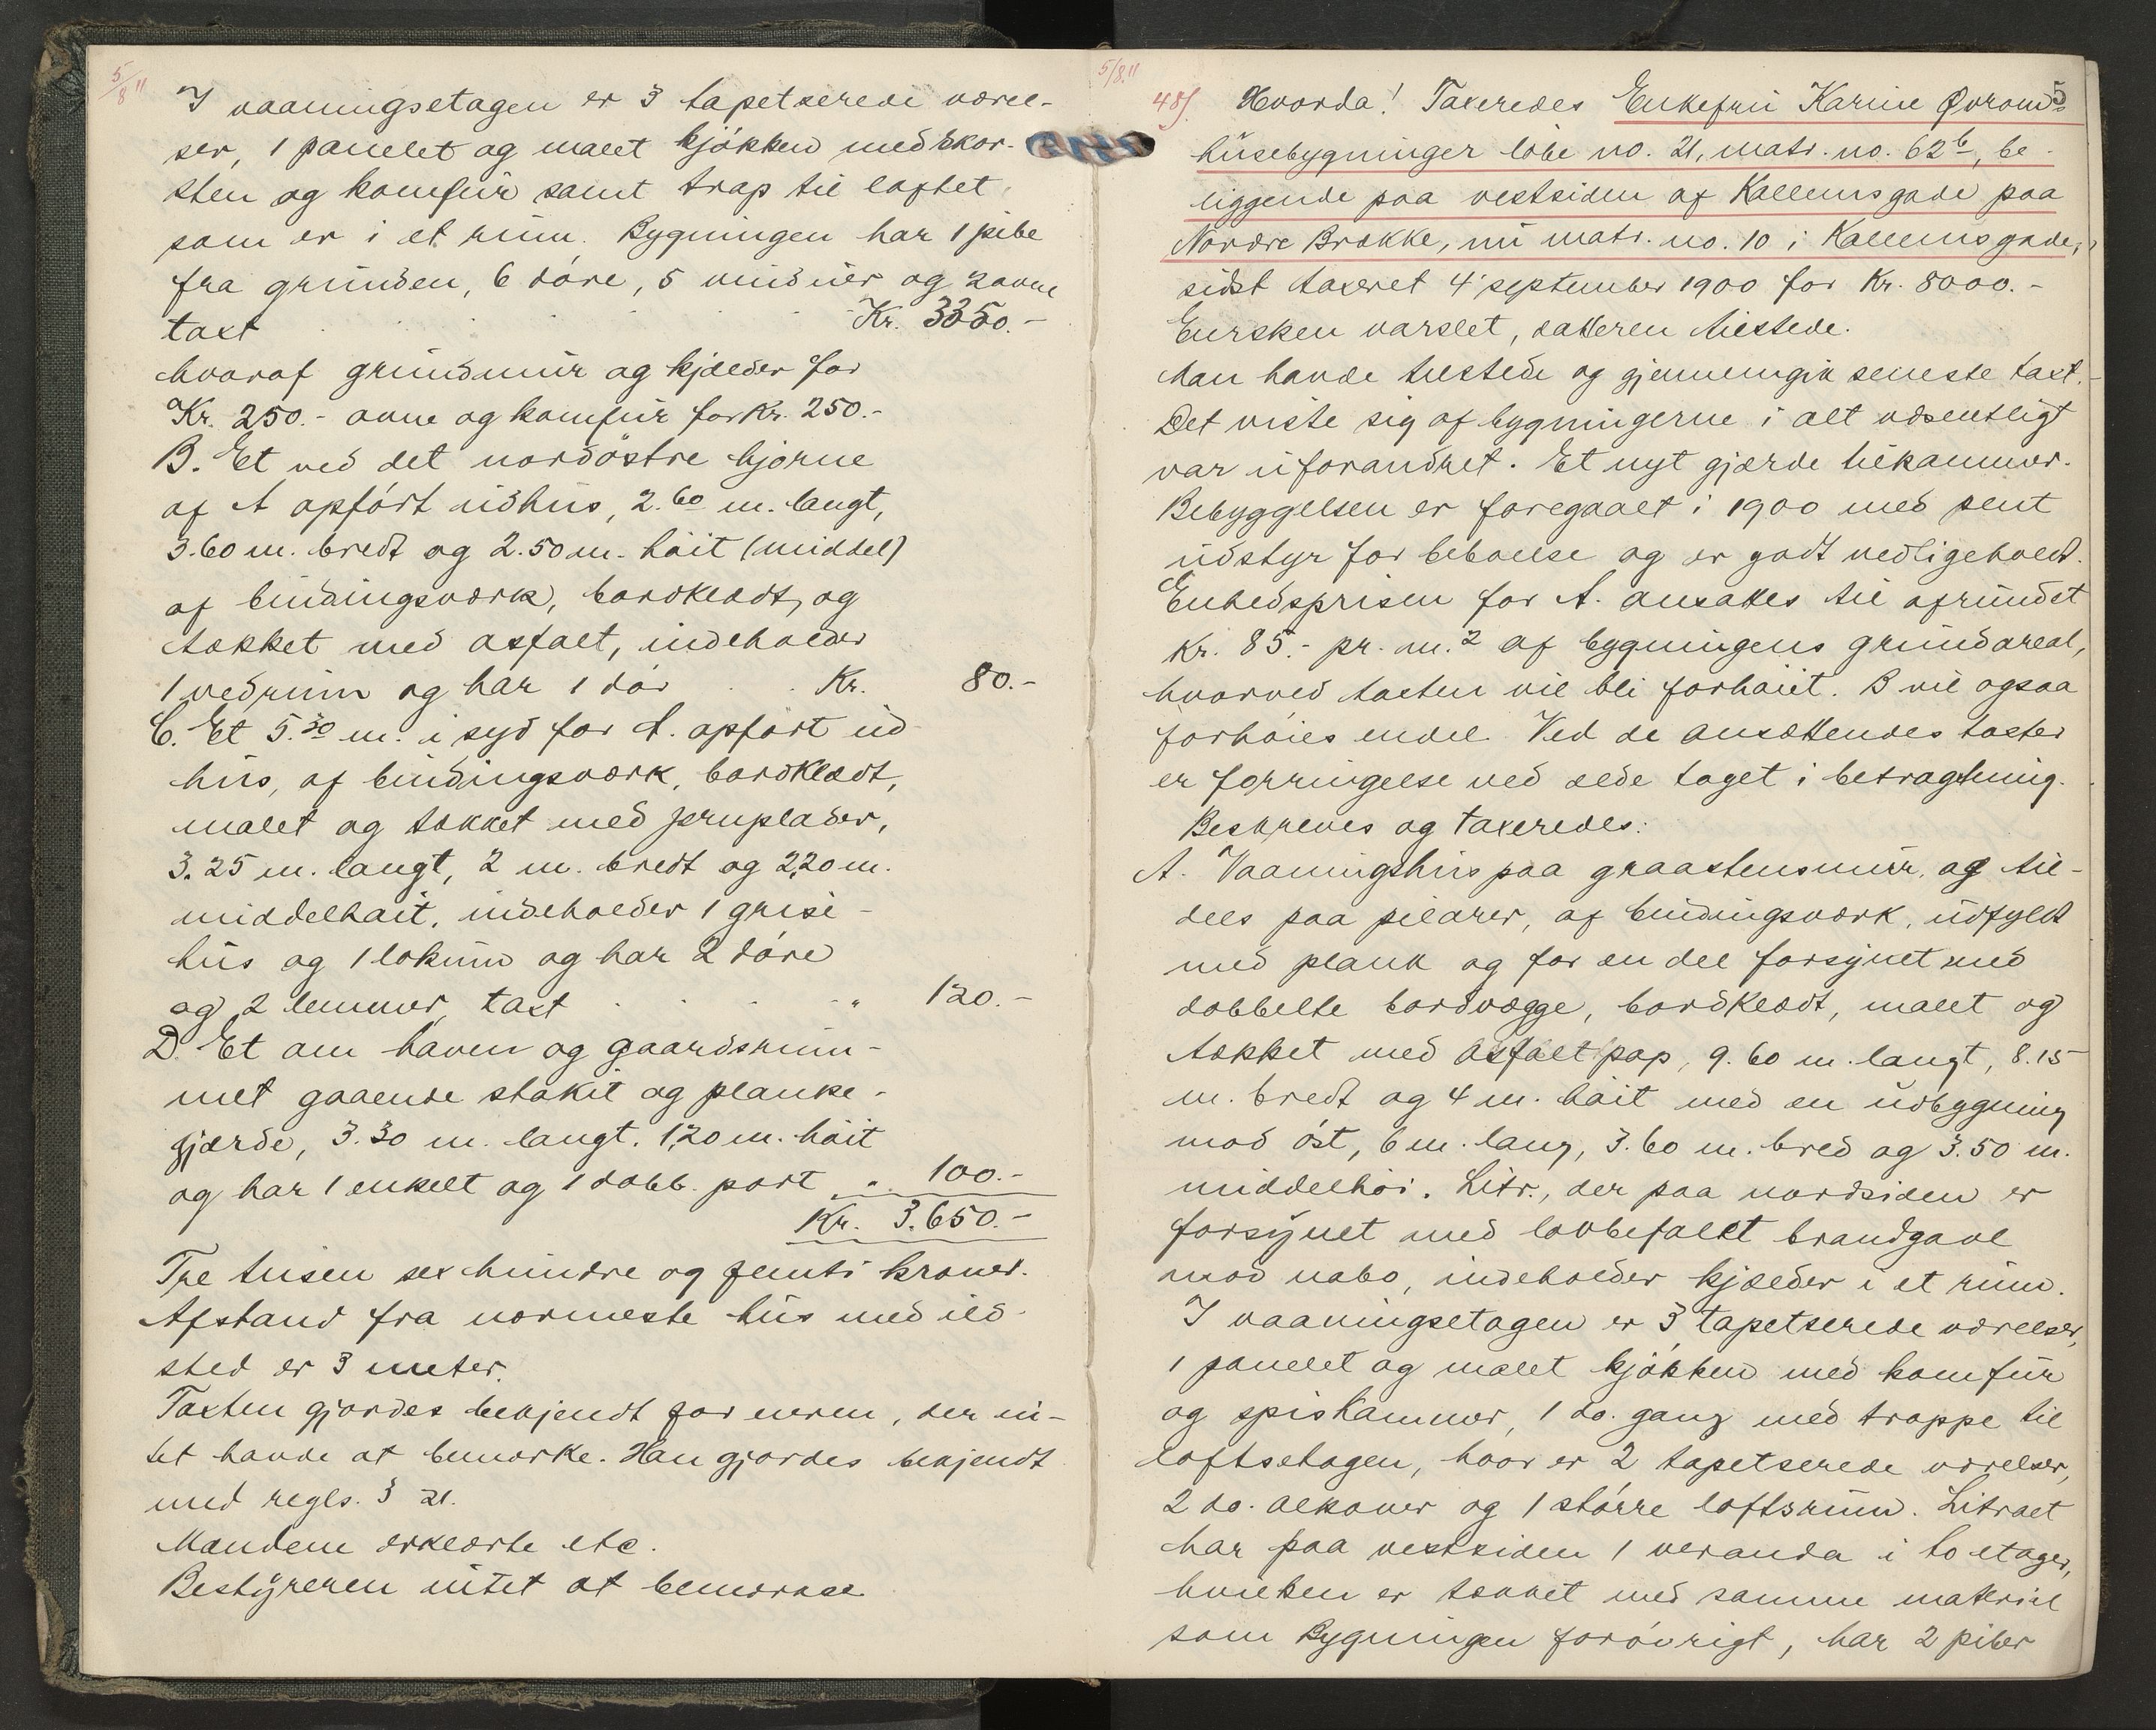 5/8 11
I vaaningsetagen er 3 tapetserede værel-
ser, 1 panelet og malet kjökken med skor-
sten og komfur samt trap til loftet,
som er i et rum. Bygningen har 1 pibe
fra grunden, 6 döre, 5 vinduer og 2 ovne
taxt . . . . . Kr. 3350.-
hvoraf grundmur og kjælder for
Kr. 250.- ovne og komfur for Kr. 250.-
B. Et ved det nordöstre hjörne
af A opfört udhus, 2.60 m. langt,
3.60 m. bredt og 2.50 m. höit (middel)
af bindingsværk, bordklædt, og
tækket med asfalt, indeholder
1 vedrum og har 1 dör . . Kr. 80.-
C. Et 5.30 m. i syd for A. opfört ud-
hus, af bindingsværk, bordklædt,
malet og tækket med jernplader,
3.25 m. langt, 2 m. bredt og 2,20 m.
middelhöit, indeholder 1 grise-
hus og 1 lokum og har 2 döre
og 2 lemmer, taxt . . . . " 120.-
D. Et om haven og gaardsrum-
met gaaende stakit og planke-
gjærde, 3.30 m. langt. 1,20 m. höit
og har 1 enkelt og 1 dobb. port . " 100.-
Kr. 3.650.-
Tre tusen sex hundre og femti kroner.
Afstand fra nærmeste hus med ild-
sted er 3 meter.
Taxten gjordes bekjendt for eieren, der in-
tet havde at bemærke. Han gjordes bekjendt
med regls. § 21.
Mændene erklærte etc.
Bestyreren intet at bemærke
5/8.11
5
48/. Hvorda! Taxeredes Enkefru Karine Øvrom's
husebygninger löbe no. 21, matr. no. 62b, be-
liggende paa vestsiden af Kallumsgade paa
Nordre Brække, nu matr. no. 10 i Kallumsgade,
sidst taxeret 4' september 1900 for Kr. 8000.-
Eiersken varslet, datteren tilstede.
Man havde tilstede og gjennemgik seneste taxt.-
Det viste sig af bygningerne i alt væsentligt
var uforandret. Et nyt gjærde tilkommer.
Bebyggelsen er foregaaet i 1900 med pent
udstyr for beboelse og er godt vedligeholdt.
Enhedsprisen for A. ansattes til afrundet
Kr. 85.- pr. m.2 af bygningens grundareal,
hvorved taxten vil bli forhöiet. B vil ogsaa
forhöies endel. Ved de ansættendes taxter
er forringelse ved ælde taget i betragtning.
Beskreves og taxeredes:
A. Vaaningshus paa graastensmur, og til-
dels paa pilarer, af bindingsværk, udfyldt
med plank og for en del forsynet med
dobbelte bordvægge, bordklædt, malet og
tækket med asfaltpap, 9.60 m. langt, 8.15
m. bredt og 4 m. höit med en udbygning
mod öst, 6 m. lang, 3.60 m. bred og 3.50 m.
middelhöi. Litr., der paa nordsiden er
forsynet med lovbefalet brandgavl
mod nabo, indeholder kjælder i et rum.
I vaaningsetagen er 3 tapetserede værelser,
1 panelet og malet kjökken med komfur
og spiskammer, 1 do. gang med trappe til
loftsetagen, hvor er 2 tapetserede værelser,
2 do. alkover og 1 större loftsrum. Litraet
har paa vestsiden 1 veranda i to etager,
hvilken er tækket med samme material
som Bygningen forövrigt, har 2 piber